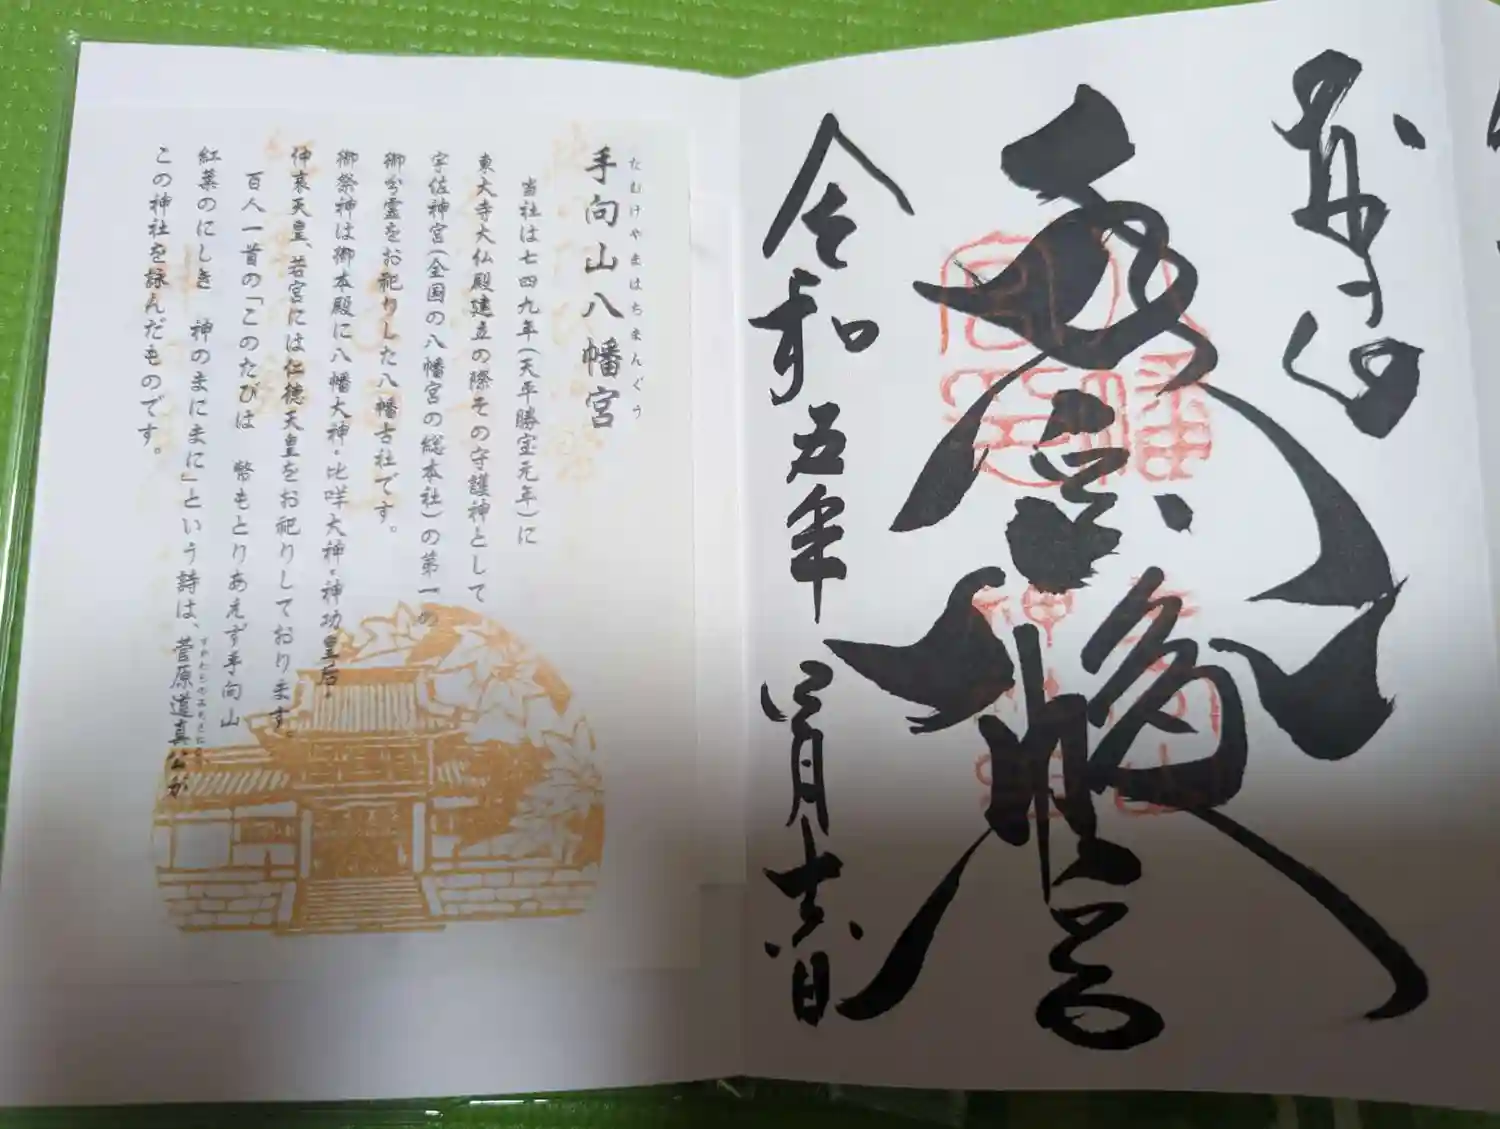 奉拝
八幡宮
令和五年三月十六日
たむけやまはちまんぐう
手向山八幡宮
当社は七四九年(天平勝宝元年)に
東大寺大仏殿建立の際その守護神として
宇佐神宮(全国の八幡宮の総本社)の第一の
御分霊をお祀りした八幡古社です。
御祭神は御本殿に八幡大神・比咩大神・神功皇后・
仲哀天皇、若宮には仁徳天皇をお祀りしております。
百人一首の「このたびは 幣もとりあえず手向山
紅葉のにしき 神のまにまに」という詩は、菅原道真公が
すがわらのみちざね
この神社を詠んだものです。